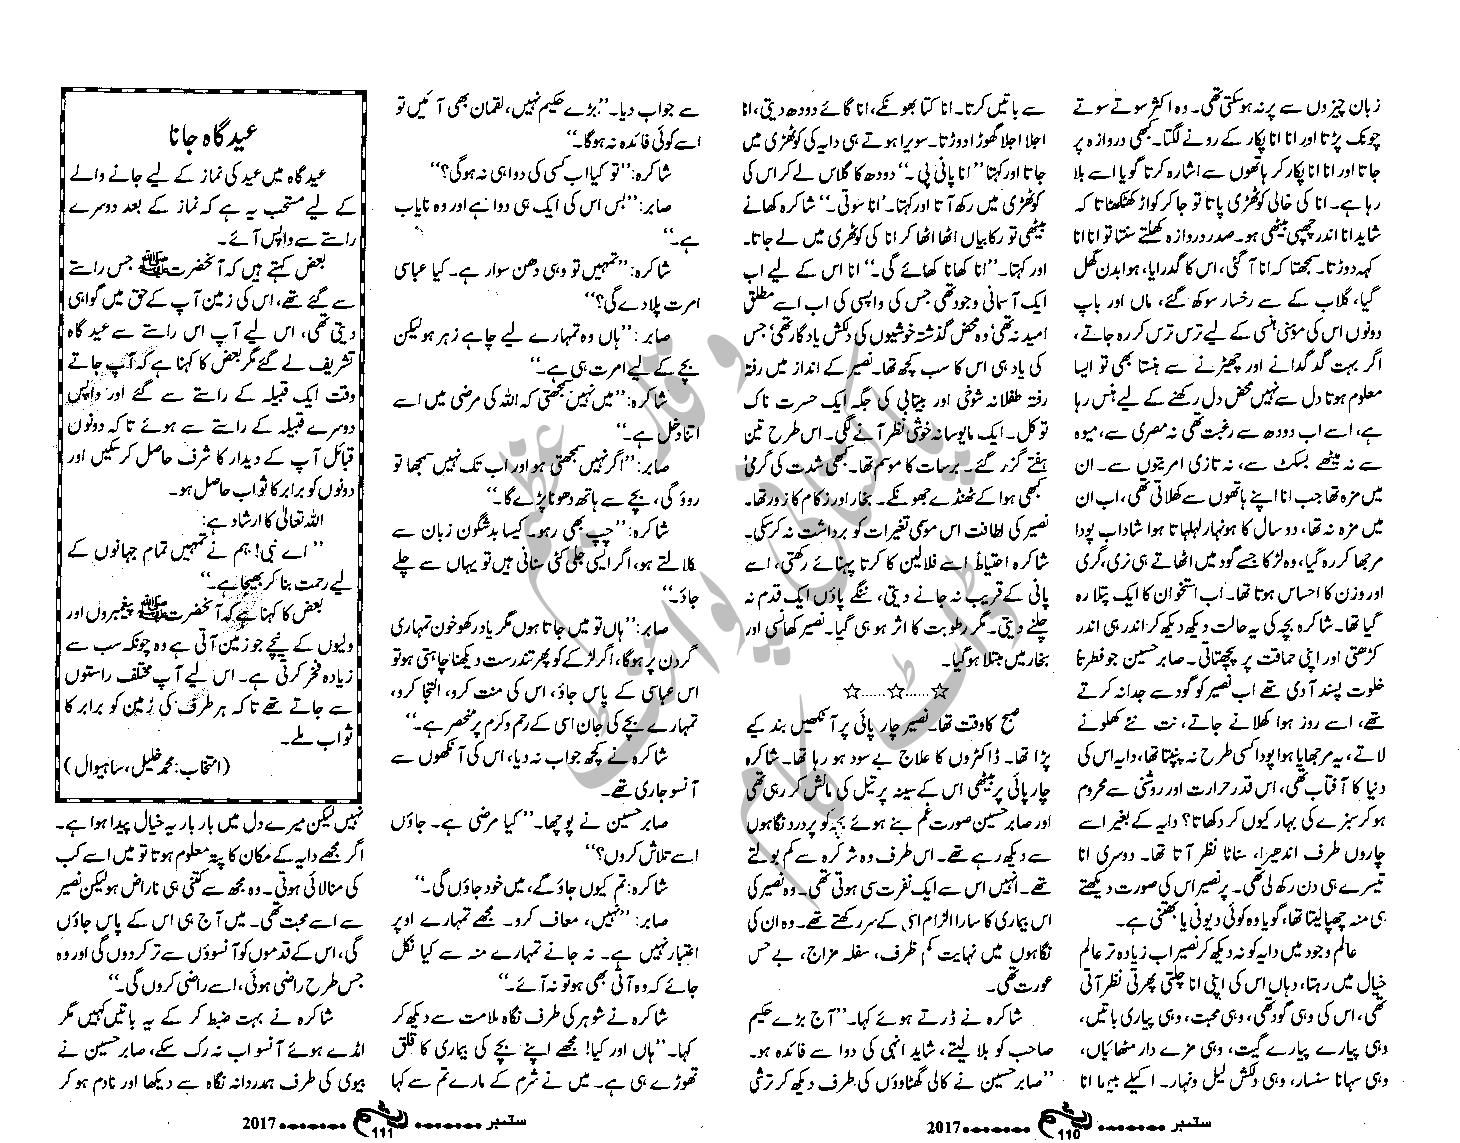 زبان چیزوں سے پر نہ ہو سکتی تھی۔ وہ اکثر سوتے سوتے
چونک پڑتا اور انا انا پکار کے رونے لگتا۔ کبھی دروازہ پر
جاتا اور انا انا پکار کر ہاتھوں سے اشارہ کرتا گویا اسے بلا
رہا ہے۔ انا کی خالی کوٹھری پاتا تو جا کر کواڑ کھٹکھٹاتا کہ
شاید انا اندر چھپی بیٹھی ہو۔ صدر دروازہ کھلتے سنتا تو انا انا
کہہ دوڑتا۔ سمجھتا کہ انا آ گئی، اس کا گدرایا، ہوا بدن گھل
گیا، گلاب کے سے رخسار سوکھ گئے، ماں اور باپ
دونوں اس کی موہنی ہنسی کے لیے ترس ترس کر رہ جاتے،
اگر بہت گدگدانے اور چھیڑنے سے ہنستا بھی تو ایسا
معلوم ہوتا دل سے نہیں محض دل رکھنے کے لیے ہنس رہا
ہے، اسے اب دودھ سے رغبت تھی نہ مصری سے، میوہ
سے نہ میٹھے بسکٹ سے، نہ تازی امرتیوں سے۔ ان
میں مزہ تھا جب انا اپنے ہاتھوں سے کھلاتی تھی، اب ان
میں مزہ نہ تھا، دو سال کا ہونہار لہلہاتا ہوا شاداب پودا
مرجھا کر رہ گیا، وہ لڑکا جسے گود میں اٹھاتے ہی نرمی، گرمی
اور وزن کا احساس ہوتا تھا۔ اب استخوان کا ایک پتلا رہ
گیا تھا۔ شاکرہ بچہ کی یہ حالت دیکھ دیکھ کر اندر ہی اندر
کڑھتی اور اپنی حماقت پر پچھتاتی۔ صابر حسین جو فطرتا
خلوت پسند آدمی تھے اب نصیر کو گود سے جدا نہ کرتے
تھے، اسے روز ہوا کھلانے جاتے، نت نئے کھلونے
لاتے، یہ مرجھایا ہوا پودا کسی طرح نہ پنپتا تھا، دایہ اس کی
دنیا کا آفتاب تھی، اس قدر حرارت اور روشنی سے محروم
ہو کر سبزے کی بہار کیوں کر دکھاتا؟ دایہ کے بغیر اسے
چاروں طرف اندھیرا، سناٹا نظر آتا تھا۔ دوسری انا
تیسرے ہی دن رکھ لی تھی۔ پر نصیر اس کی صورت دیکھتے
ہی منہ چھپا لیتا تھا، گویا وہ کوئی دیونی یا بھتنی ہے۔
عالم وجود میں دایہ کو نہ دیکھ کر نصیر اب زیادہ تر عالم
خیال میں رہتا، وہاں اس کی اپنی انا چلتی پھرتی نظر آتی
تھی، اس کی وہی گود تھی، وہی محبت، وہی پیاری باتیں،
وہی پیارے پیارے گیت، وہی مزے دار مٹھائیاں،
وہی سہانا سنسار، وہی دلکش لیل و نہار۔ اکیلے بیٹھا انا
سے باتیں کرتا۔ انا کتا بھونکے، انا گائے دودھ دیتی، انا
اجلا اجلا گھوڑا دوڑتا۔ سویرا ہوتے ہی دایہ کی کوٹھری میں
جاتا اور کہتا ”انا پانی پی۔“ دودھ کا گلاس لے کر اس کی
کوٹھری میں رکھ آتا اور کہتا۔ ”انا سوتی۔“ شاکرہ کھانے
بیٹھتی تو رکابیاں اٹھا اٹھا کر انا کی کوٹھری میں لے جاتا۔
اور کہتا۔ ”انا کھانا کھائے گی۔“ انا اس کے لیے اب
ایک آسمانی وجود تھی جس کی واپسی کی اب اسے مطلق
امید نہ تھی، وہ محض گذشتہ خوشیوں کی دلکش یادگار تھی جس
کی یاد ہی اس کا سب کچھ تھا۔ نصیر کے انداز میں رفتہ
رفتہ طفلانہ شوخی اور بیتابی کی جگہ ایک حسرت ناک
توکل۔ ایک مایوسانہ خوشی نظر آنے لگی۔ اس طرح تین
ہفتے گزر گئے۔ برسات کا موسم تھا۔ کبھی شدت کی گرمی
کبھی ہوا کے ٹھنڈے جھونکے۔ بخار اور زکام کا زور تھا۔
نصیر کی لطافت اس موسمی تغیرات کو برداشت نہ کر سکی۔
شاکرہ احتیاطاً اسے فلالین کا کرتا پہنائے رکھتی، اسے
پانی کے قریب نہ جانے دیتی، ننگے پاؤں ایک قدم نہ
چلنے دیتی۔ مگر رطوبت کا اثر ہو ہی گیا۔ نصیر کھانسی اور
بخار میں مبتلا ہو گیا۔
☆.....☆.....☆
صبح کا وقت تھا۔ نصیر چارپائی پر آنکھیں بند کیے
پڑا تھا۔ ڈاکٹروں کا علاج بے سود ہو رہا تھا۔ شاکرہ
چارپائی پر بیٹھی اس کے سینہ پر تیل کی مالش کر رہی تھی
اور صابر حسین صورت غم بنے ہوئے بچہ کو پر درد نگاہوں
سے دیکھ رہے تھے۔ اس طرف وہ شاکرہ سے کم بولتے
تھے۔ انہیں اس سے ایک نفرت سی ہوتی تھی۔ وہ نصیر کی
اس بیماری کا سارا الزام اسی کے سر رکھتے تھے۔ وہ ان کی
نگاہوں میں نہایت کم ظرف، سفلہ مزاج، بے حس
عورت تھی۔
شاکرہ نے ڈرتے ہوئے کہا۔ ”آج بڑے حکیم
صاحب کو بلا لیتے، شاید انہی کی دوا سے فائدہ ہو۔
”صابر حسین نے کالی گھٹاؤں کی طرف دیکھ کر ترشی
سے جواب دیا۔ ”بڑے حکیم نہیں، لقمان بھی آئیں تو
اسے کوئی فائدہ نہ ہوگا۔“
شاکرہ: ”تو کیا اب کسی کی دوا ہی نہ ہوگی؟“
صابر: ”بس اس کی ایک ہی دوا ہے اور وہ نایاب
ہے۔“
شاکرہ: ”تمہیں تو وہی دھن سوار ہے۔ کیا عباسی
امرت پلا دے گی؟“
صابر: ”ہاں وہ تمہارے لیے چاہے زہر ہو لیکن
بچے کے لیے امرت ہی ہے۔“
شاکرہ: ”میں نہیں سمجھتی کہ اللہ کی مرضی میں اسے
اتنا دخل ہے۔“
صابر: ”اگر نہیں سمجھتی ہو اور اب تک نہیں سمجھا تو
روؤ گی، بچے سے ہاتھ دھونا پڑے گا۔“
شاکرہ: ”چپ بھی رہو۔ کیسا بدشگون زبان سے
نکالتے ہو، اگر ایسی جلی کٹی سنانی ہیں تو یہاں سے چلے
جاؤ۔“
صابر: ”ہاں تو میں جاتا ہوں مگر یاد رکھو خون تمہاری
گردن پر ہوگا، اگر لڑکے کو پھر تندرست دیکھنا چاہتی ہو تو
اس عباسی کے پاس جاؤ، اس کی منت کرو، التجا کرو،
تمہارے بچے کی جان اسی کے رحم و کرم پر منحصر ہے۔“
شاکرہ نے کچھ جواب نہ دیا، اس کی آنکھوں سے
آنسو جاری تھے۔
صابر حسین نے پوچھا۔ ”کیا مرضی ہے۔ جاؤں
اسے تلاش کروں؟“
شاکرہ: تم کیوں جاؤ گے، میں خود جاؤں گی۔“
صابر: ”نہیں، معاف کرو۔ مجھے تمہارے اوپر
اعتبار نہیں ہے۔ نہ جانے تمہارے منہ سے کیا نکل
جائے کہ وہ آتی بھی ہو تو نہ آئے۔“
شاکرہ نے شوہر کی طرف نگاہ ملامت سے دیکھ کر
کہا۔ ”ہاں اور کیا! مجھے اپنے بچے کی بیماری کا قلق
تھوڑے ہی ہے۔ میں نے شرم کے مارے تم سے کہا
عید گاہ جانا
عید گاہ میں عید کی نماز کے لیے جانے والے
کے لیے مستحب یہ ہے کہ نماز کے بعد دوسرے
راستے سے واپس آئے۔
بعض کہتے ہیں کہ آنحضرت ﷺ جس راستے
سے گئے تھے، اس کی زمین آپ کے حق میں گواہی
دیتی تھی، اس لیے آپ اس راستے سے عید گاہ
تشریف لے گئے مگر بعض کا کہنا ہے کہ آپ جاتے
وقت ایک قبیلہ کے راستے سے گئے اور واپس
دوسرے قبیلہ کے راستے سے ہوئے تاکہ دونوں
قبائل آپ کے دیدار کا شرف حاصل کر سکیں اور
دونوں کو برابر کا ثواب حاصل ہو۔
اللہ تعالیٰ کا ارشاد ہے:
”اے نبی! ہم نے تمہیں تمام جہانوں کے
لیے رحمت بنا کر بھیجا ہے۔“
بعض کا کہنا ہے کہ آنحضرت ﷺ پیغمبروں اور
ولیوں کے نیچے جو زمین آتی ہے وہ چونکہ سب سے
زیادہ فخر کرتی ہے۔ اس لیے آپ مختلف راستوں
سے جاتے تھے تاکہ ہر طرف کی زمین کو برابر کا
ثواب ملے۔
(انتخاب: محمد خلیل، ساہیوال)
نہیں لیکن میرے دل میں بار بار یہ خیال پیدا ہوا ہے۔
اگر مجھے دایہ کے مکان کا پتہ معلوم ہوتا تو میں اسے کب
کی منا لائی ہوتی۔ وہ مجھ سے کتنی ہی ناراض ہو لیکن نصیر
سے اسے محبت تھی۔ میں آج ہی اس کے پاس جاؤں
گی، اس کے قدموں کو آنسوؤں سے تر کر دوں گی اور وہ
جس طرح راضی ہوئی، اسے راضی کروں گی۔“
شاکرہ نے بہت ضبط کر کے یہ باتیں کہیں مگر
امڈے ہوئے آنسو اب نہ رک سکے، صابر حسین نے
بیوی کی طرف ہمدردانہ نگاہ سے دیکھا اور نادم ہو کر
ستمبر 110 2017
ستمبر 111 2017